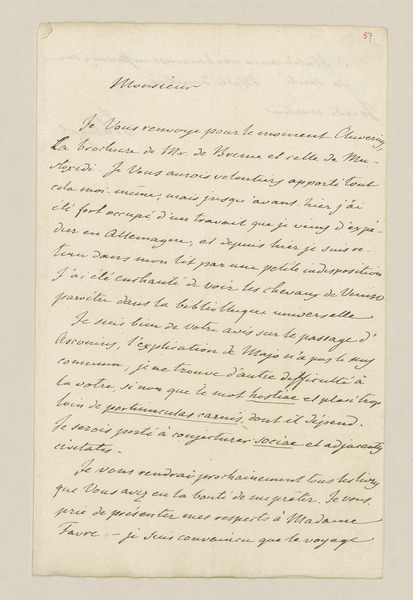 57
Monsieur
Je Vous renvoye pour le moment
la brochure de Mr. de Breme et celle de Mu-
stoxedi. Je Vous aurois volontiers apporté tout
cela moi-même, mais jusqu'avant hier j'ai
été fort occupé d'un travail que je viens d'expé-
dier en Allemagne, et depuis hier je suis re-
tenu dans mon lit par une petite indisposition
J'ai été enchanté de voir les chevaux de Venise
paroître dans la bibliothèque universelle
Je suis bien de votre avis sur le passage d'
Asconius, l'explication de Majo n'a pas le sens
commun, je ne trouve d'autre difficulté à
la votre, si non que le mot hostiae est placé trop
loin de portiunculas carnis, dont il dépend.
Je serois porté à conjecturer sociae et adjacentes
civitates.
Je vous rendrai prochainement tous les livres
que Vous avez eu la bonté de me prêter. Je vous
prie de présenter mes respects à Madame
Favre – je suis convaincu que le voyage